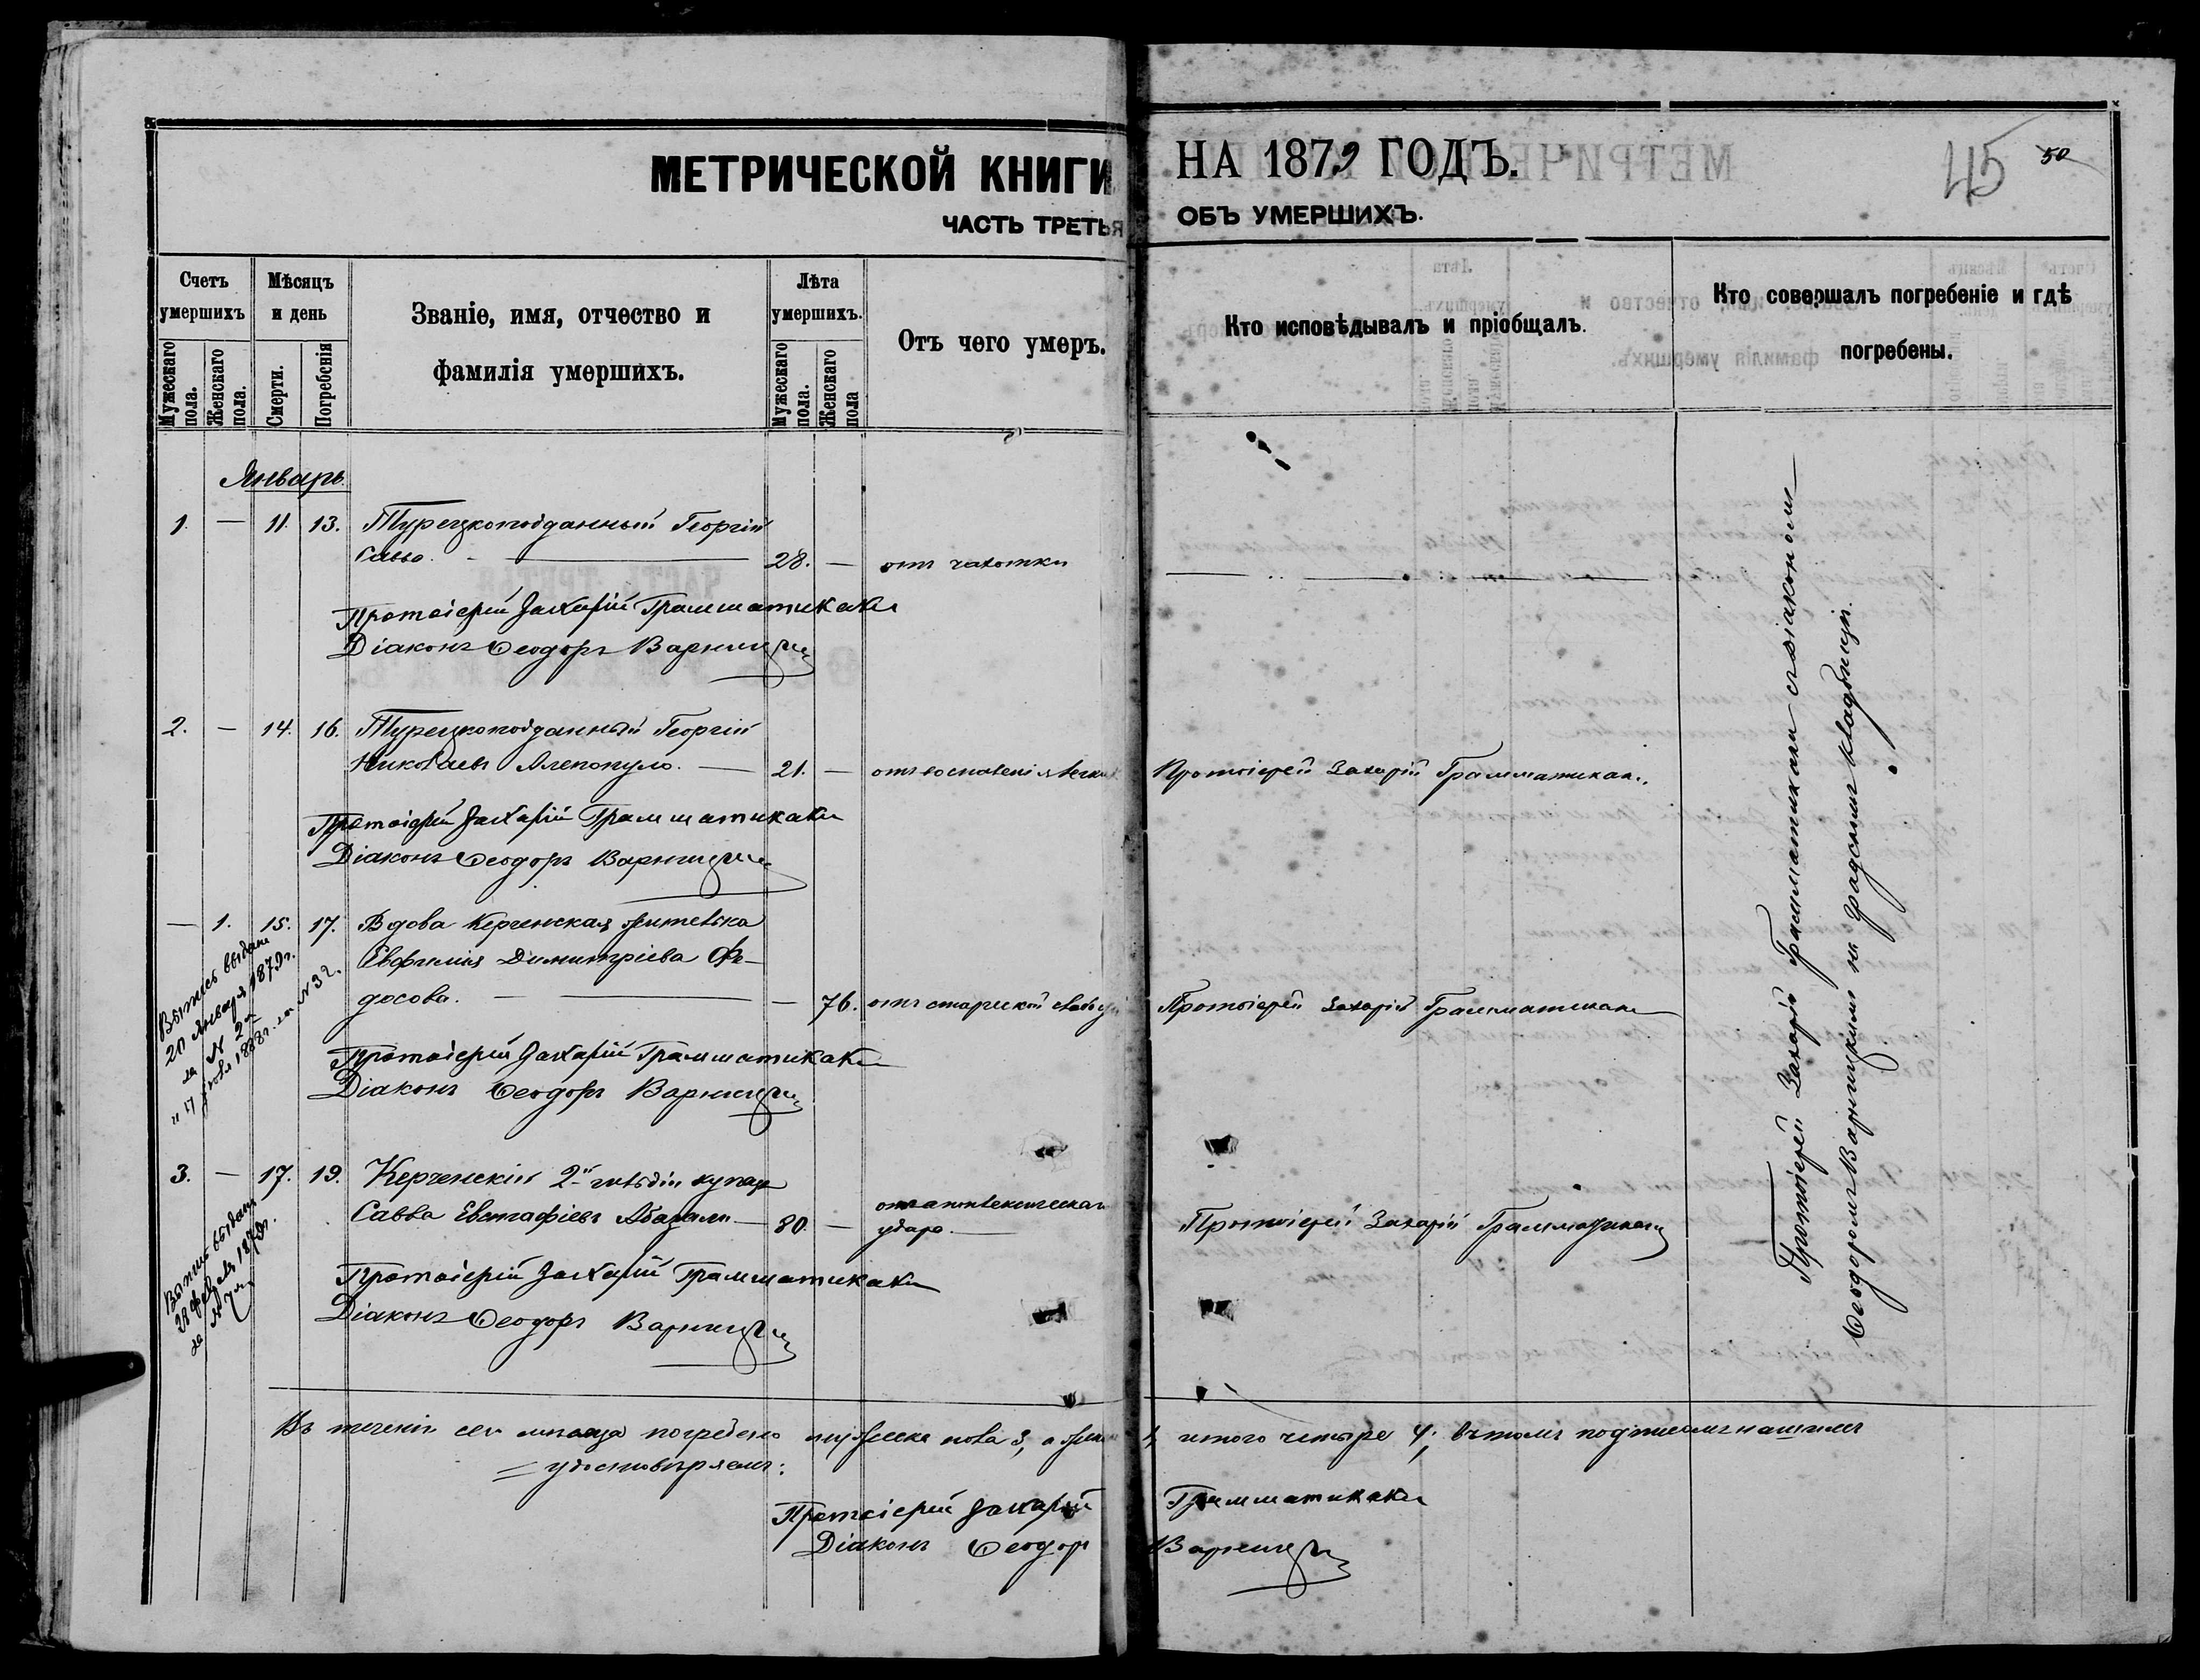 МЕТРИЧЕСКОЙ КНИГИ НА 1879 ГОДЪ.
45 50
ЧАСТЬ ТРЕТЬЯ ОБЪ УМЕРШИХЪ.
Счетъ умершихъ
Мужескаго пола.
Женскаго пола.
Мѣсяцъ и день
Смерти.
Погребенія
Званіе, имя, отчество и
фамилія умершихъ.
Лѣта умершихъ.
Мужескаго пола.
Женскаго пола
Отъ чего умеръ.
Кто исповѣдывалъ и пріобщалъ.
Кто совершалъ погребеніе и гдѣ
погребены.
Январь.
1. — 11. 13. Турецкоподданный Георгій
Савва. — 28. — отъ чахотки
Протоіерей Захарій Грамматикаки
Діаконъ Ѳеодоръ Варницкій
2. — 14. 16. Турецкоподданный Георгій
Николаевъ Алепопуло. — 21. — отъ воспаленія легкихъ Протоіерей Захарій Грамматикаки.
Протоіерей Захарій Грамматикаки
Діаконъ Ѳеодоръ Варницкій
— 1. 15. 17. Вдова Керченская жителька
Евфимія Димитріева Фе-
досова. — — 76. отъ старческой слабости Протоіерей Захарій Грамматикаки
Выпись выдана
20 Января 1879 г.
за № 2 м
1888 г. за № 32.
Протоіерей Захарій Грамматикаки
Діаконъ Ѳеодоръ Варницкій
3. — 17. 19. Керченскій 2-й гильдіи купецъ
Савва Евстафіевъ — 80. — отъ апоплексическаго
удара. — Протоіерей Захарій Грамматикаки
Выпись выдана
февраля 1879 г.
за № 7 м
Протоіерей Захарій Грамматикаки
Діаконъ Ѳеодоръ Варницкій
Протоіерей Захарій Грамматикаки съ діакономъ
Ѳеодоромъ Варницкимъ на градскомъ кладбищѣ.
Въ теченіи сего мѣсяца погребено мужеска пола 3, а женска 1, итого четыре 4; въ томъ подписомъ нашимъ
удостовѣряемъ:
Протоіерей Захарій Грамматикаки
Діаконъ Ѳеодоръ Варницкій